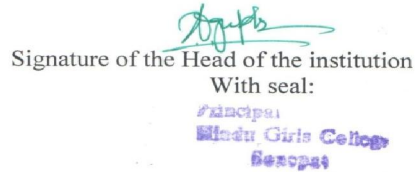 Signature of the Head of the institution
With seal:
Principal
Hindu Girls College
Sonepat